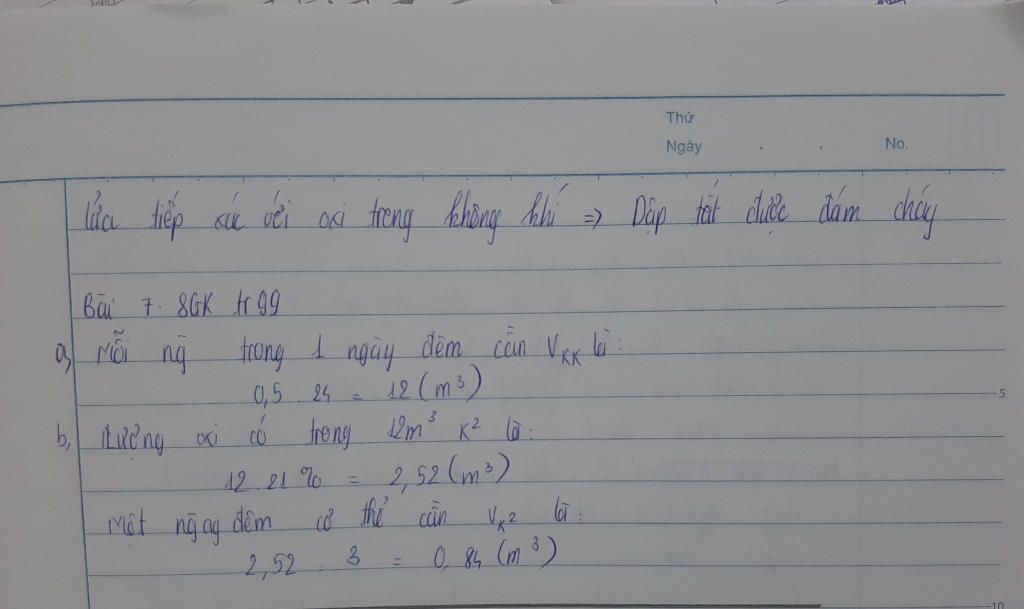 Thứ
Ngày . . No.
lửa tiếp xúc với oxi trong không khí => Dập tắt được đám cháy
Bài 7. SGK tr 99
a, Mỗi ng trong 1 ngày đêm cần VKK là:
0,5 . 24 = 12 (m³)
5
b, Lượng oxi có trong 12m³ K² là:
12 . 21% = 2,52 (m³)
Một ngay đêm cơ thể cần VK² là:
2,52 : 3 = 0,84 (m³)
10